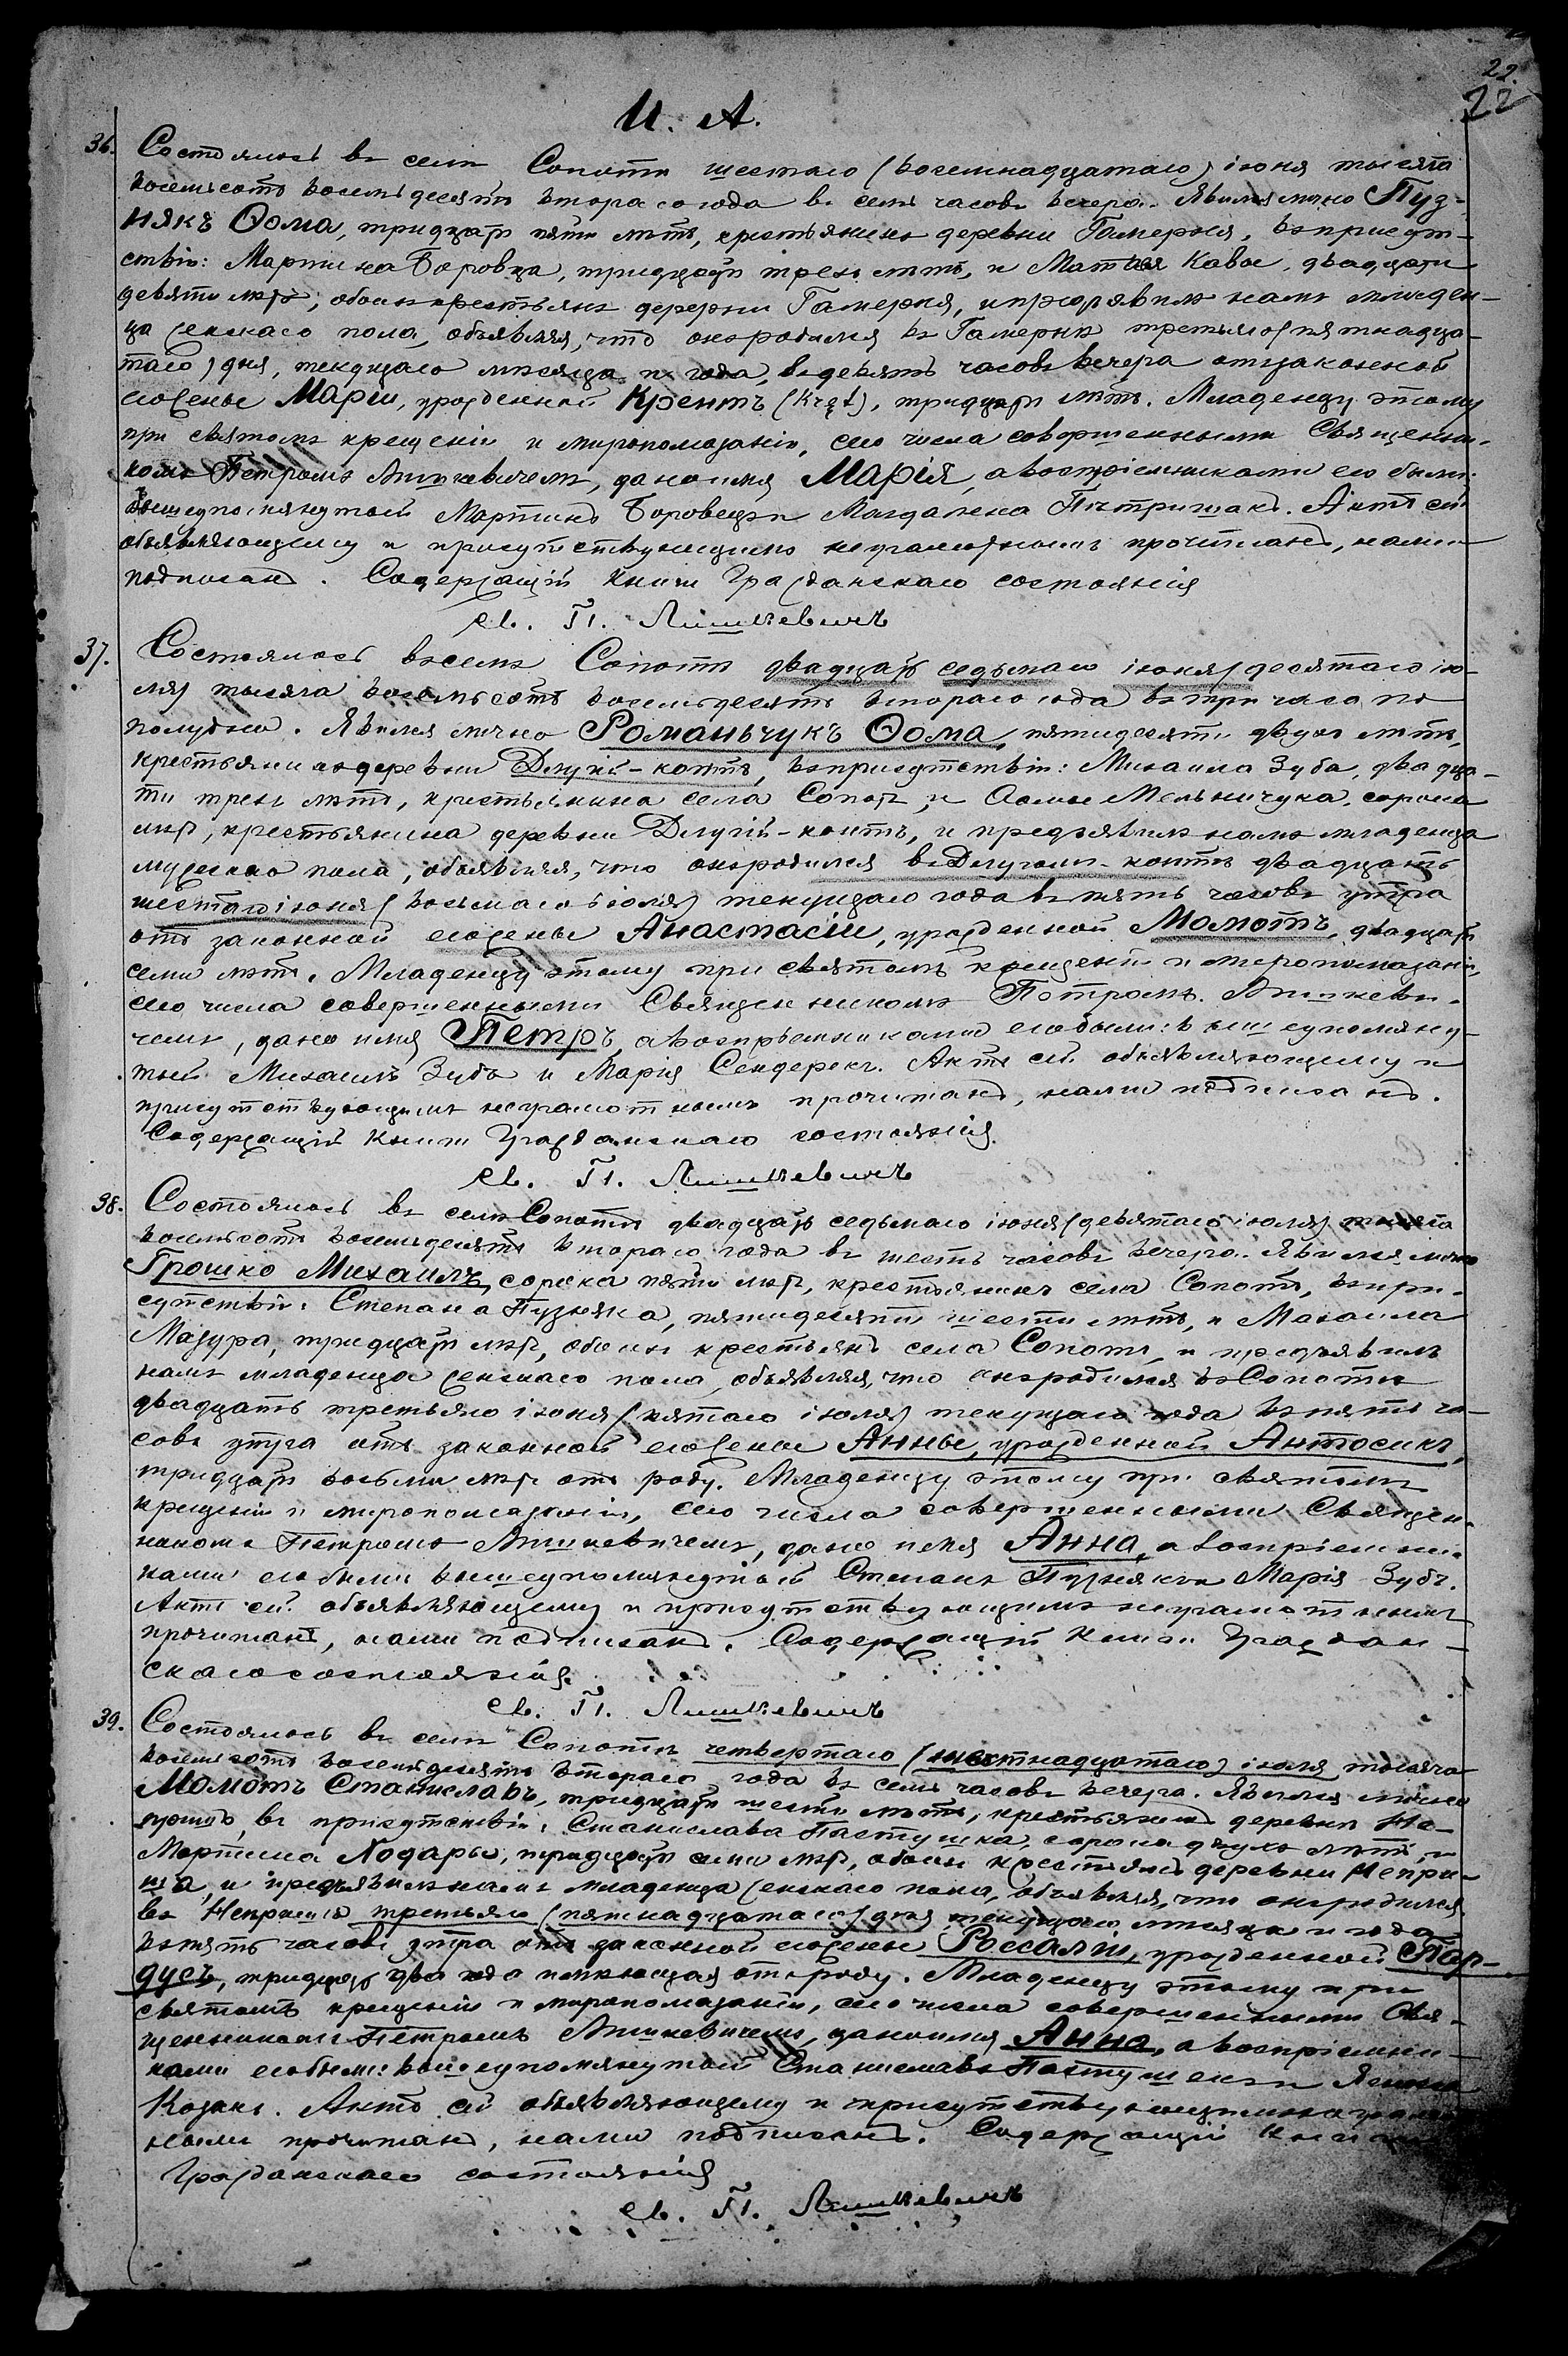 22.
22
И. А.
36. Состоялось въ селѣ Сопотѣ шестаго (восемнадцатаго) іюня тысяча
восемьсотъ восемьдесятъ втораго года въ семь часовъ вечера. Явился лично Пуз-
някъ Ѳома, тридцати пяти лѣтъ, крестьянинъ деревни Гамерня, въ присут-
ствіи: Мартина Боровца, тридцати трехъ лѣтъ, и Матвея Кавы, двадцати
девяти лѣтъ, обоихъ крестьянъ деревни Гамерня, и предъявилъ намъ младен-
ца женскаго пола, объявляя, что онъ родился въ Гамернѣ третьяго (пятнадца-
таго) дня, текущаго мѣсяца и года, въ девять часовъ вечера отъ законной
его жены Маріи, урожденной Крентъ (Kręt), тридцати лѣтъ. Младенцу этому
при святомъ крещеніи и миропомазаніи, сего числа совершенными Священни-
комъ Петромъ Лишкевичемъ, дано имя Марія, а воспріемниками его были:
вышеупомянутый Мартинъ Боровецъ и Магдалена Пѣтришакъ. Актъ сей
объявляющему и присутствующимъ неграмотнымъ прочитанъ, нами
подписанъ. Содержащій книги Гражданскаго состоянія
Св. П. Лишкевичъ
37. Состоялось въ селѣ Сопотѣ двадцать седьмаго іюня (десятаго ію-
ля) тысяча восемьсотъ восемьдесятъ втораго года въ три часа по
полудни. Явился лично Романьчукъ Ѳома, пятидесяти двухъ лѣтъ,
крестьянинъ деревни Длугій-контъ, въ присутствіи: Михаила Зуба, двадца-
ти трехъ лѣтъ, крестьянина села Сопотъ, и Ѳомы Мельничука, сорока
лѣтъ, крестьянина деревни Длугій-контъ, и предъявилъ намъ младенца
мужескаго пола, объявляя, что онъ родился въ Длугомъ-контѣ двадцать
шестаго іюня (восьмаго іюля) текущаго года въ пять часовъ утра
отъ законной его жены Анастасіи, урожденной Момотъ, двадцати
семи лѣтъ. Младенцу этому при святомъ крещеніи и миропомазаніи,
сего числа совершенными Священникомъ Петромъ Лишкеви-
чемъ, дано имя Петръ, а воспріемниками его были: вышеупомяну-
тый Михаилъ Зубъ и Марія Сендерекъ. Актъ сей объявляющему и
присутствующимъ неграмотнымъ прочитанъ, нами подписанъ.
Содержащій книги Гражданскаго состоянія.
Св. П. Лишкевичъ
38. Состоялось въ селѣ Сопотѣ двадцать седьмаго іюня (девятаго іюля) тысяча
восемьсотъ восемьдесятъ втораго года въ шесть часовъ вечера. Явился лично
Грошко Михаилъ, сорока пяти лѣтъ, крестьянинъ села Сопотъ, въ при-
сутствіи: Степана Пузняка, пятидесяти шести лѣтъ, и Михаила
Мазура, тридцати лѣтъ, обоихъ крестьянъ села Сопотъ, и предъявилъ
намъ младенца женскаго пола, объявляя, что онъ родился въ Сопотѣ
двадцать третьяго іюня (пятаго іюля) текущаго года въ пять ча-
совъ утра отъ законной его жены Анны, урожденной Антосикъ,
тридцати восьми лѣтъ отъ роду. Младенцу этому при святомъ
крещеніи и миропомазаніи, сего числа совершенными Священ-
никомъ Петромъ Лишкевичемъ, дано имя Анна, а воспріемни-
ками его были вышеупомянутый Степанъ Пузнякъ и Марія Зубъ.
Актъ сей объявляющему и присутствующимъ неграмотнымъ
прочитанъ, нами подписанъ. Содержащій книги Граждан-
скаго состоянія.
Св. П. Лишкевичъ
39. Состоялось въ селѣ Сопотѣ четвертаго (шестнадцатаго) іюля тысяча
восемьсотъ восемьдесятъ втораго года въ семь часовъ вечера. Явился лично
Момотъ Станиславъ, тридцати шести лѣтъ, крестьянинъ деревни Не-
пришъ, въ присутствіи: Станислава Пастушка, сорока двухъ лѣтъ, и
Мартина Ходары, тридцати семи лѣтъ, обоихъ крестьянъ деревни Непри-
ша, и предъявилъ намъ младенца женскаго пола, объявляя, что онъ родился
въ Непришѣ третьяго (пятнадцатаго) дня текущаго мѣсяца и года
въ пять часовъ утра отъ законной его жены Россаліи, урожденной Пар-
дусъ, тридцать два года имѣющая отъ роду. Младенцу этому при
святомъ крещеніи и миропомазаніи, сего числа совершенными Свя-
щенникомъ Петромъ Лишкевичемъ, дано имя Анна, а воспріемни-
ками его были: вышеупомянутый Станиславъ Пастушекъ и
Козакъ. Актъ сей объявляющему и присутствующимъ неграмот-
нымъ прочитанъ, нами подписанъ. Содержащій книги
Гражданскаго состоянія
Св. П. Лишкевичъ